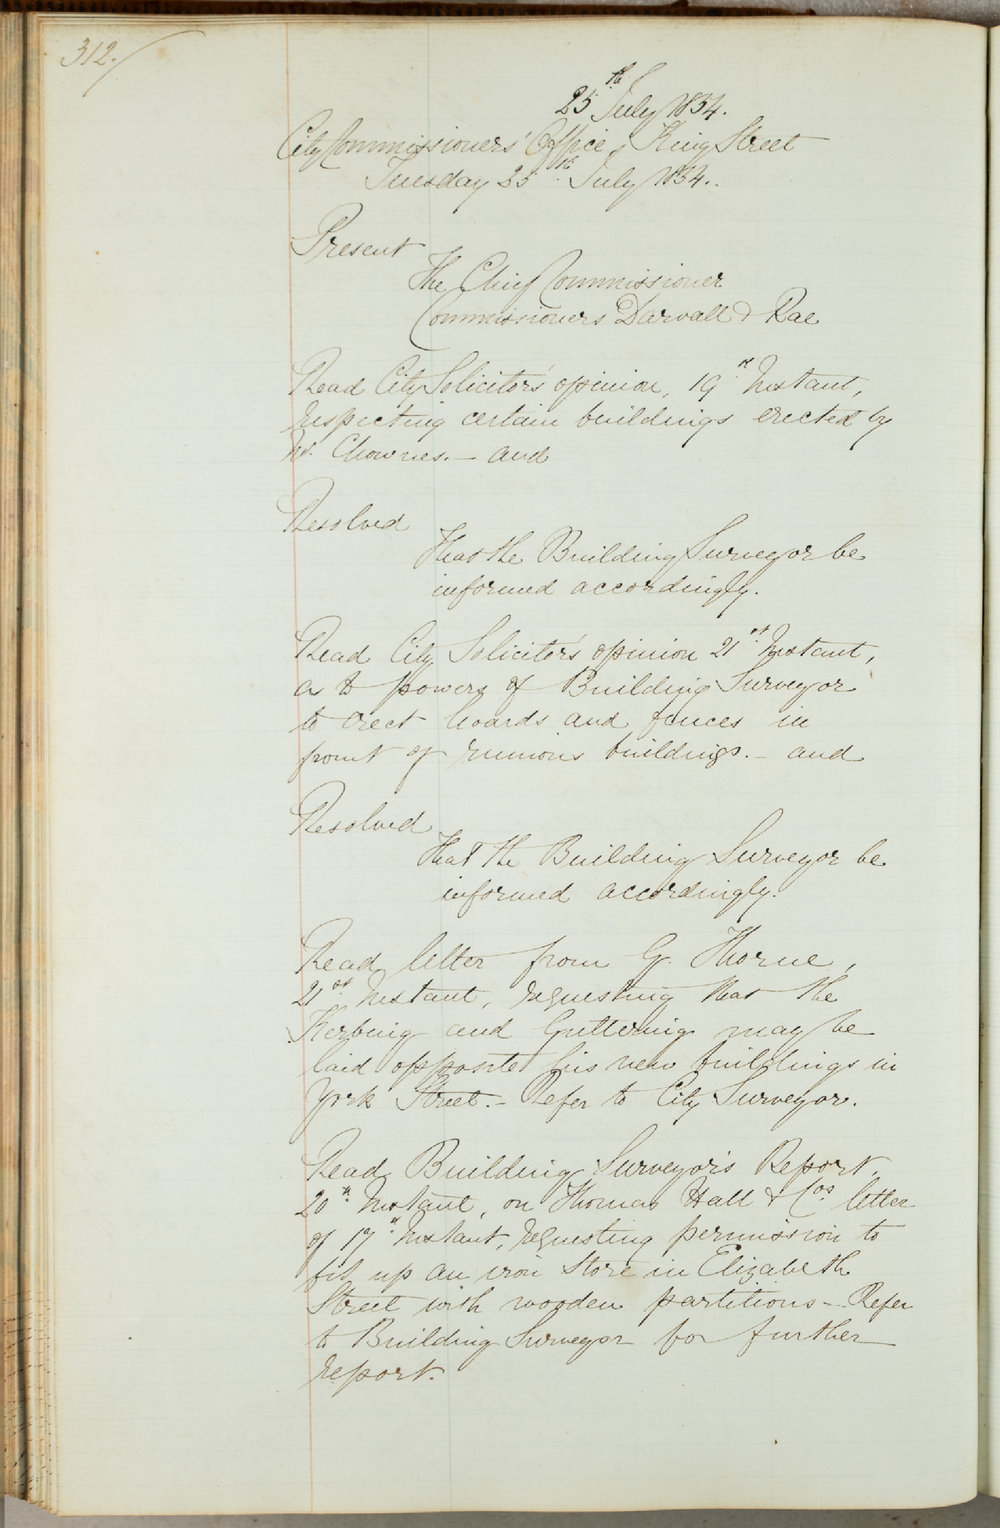 312.
25th July 1854.
City Commissioners' Office, King Street
Tuesday 25th July 1854.
Present
The Chief Commissioner
Commissioners Darvall & Rae
Read City Solicitor's opinion, 19th Instant,
respecting certain buildings erected by
Mr. Chownes. - and
Resolved
That the Building Surveyor be
informed accordingly.
Read City Solicitor's opinion 21st Instant,
as to powers of Building Surveyor
to erect hoards and fences in
front of ruinous buildings. - and
Resolved
That the Building Surveyor be
informed accordingly.
Read letter from G. Thorne,
21st Instant, requesting that the
Kerbing and Guttering may be
laid opposite his new buildings in
York Street. - Refer to City Surveyor.
Read Building Surveyor's Report,
20th Instant, on Thomas Hall & Cos letter
of 17th Instant, requesting permission to
fit up an iron Store in Elizabeth
Street with wooden partitions - Refer
to Building Surveyor for further
report.